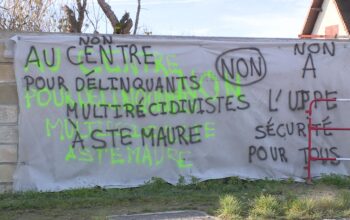 NON
AU CENTRE
POUR DÉLINQUANTS
MULTIRÉCIDIVISTES
À STE MAURE
NON
NON
À
L'UPRE
SÉCURITÉ
POUR TOUS
AU CENTRE
POUR DÉLINQUANTS
MULTI
À STE MAURE
NON